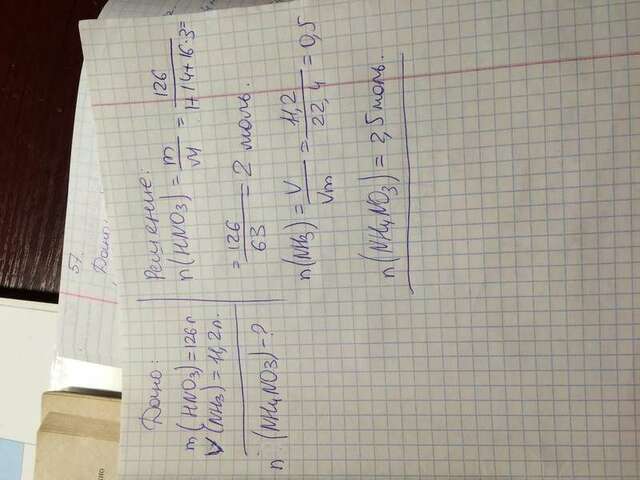 Дано:
m(HNO3)=126г
V(NH3)=11,2л.
n(NH4NO3)-?
Решение:
n(HNO3)=m/M=126/1+14+16·3=
=126/63=2 моль.
n(NH3)=V/Vm=11,2/22,4=0,5
n(NH4NO3)=2,5 моль.
57
Дано: